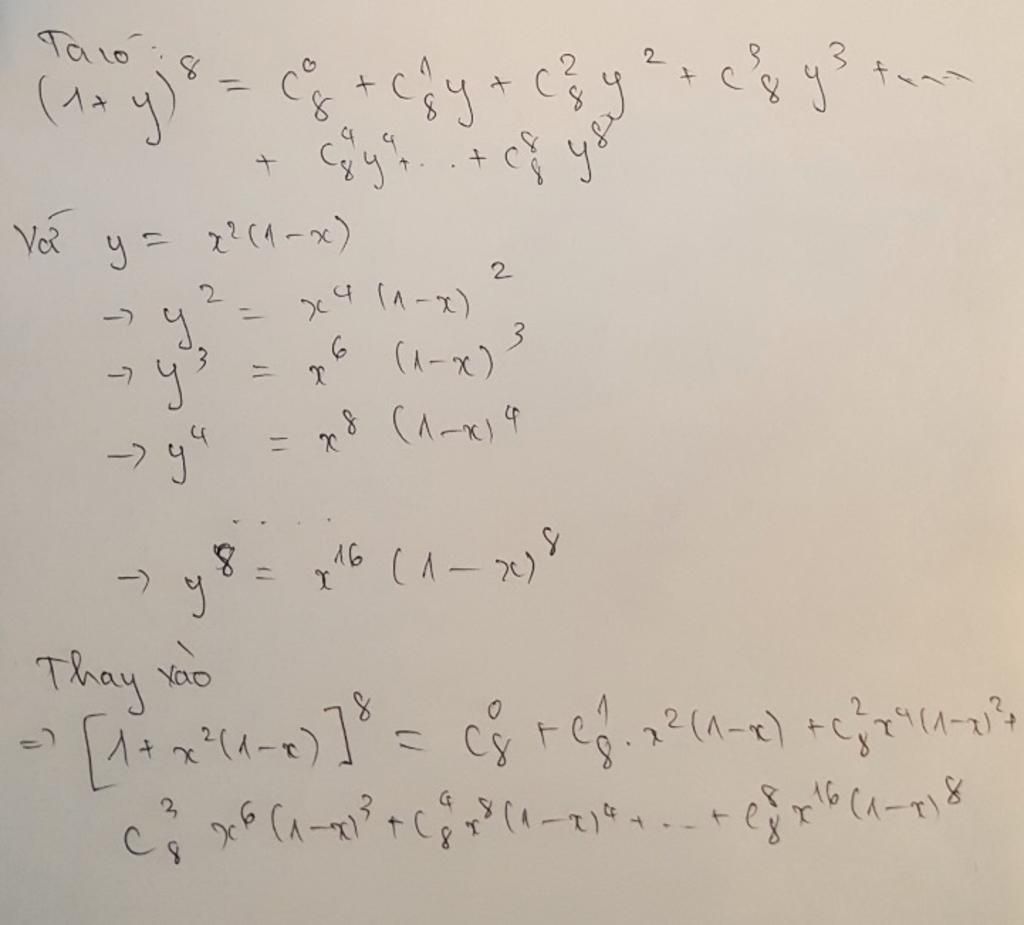 Ta có:
(1+y)⁸ = C₈⁰ + C₈¹y + C₈²y² + C₈³y³ + ...
+ C₈⁴y⁴ + ... + C₈⁸y⁸
Và y = x²(1-x)
→ y² = x⁴(1-x)²
→ y³ = x⁶(1-x)³
→ y⁴ = x⁸(1-x)⁴
....
→ y⁸ = x¹⁶(1-x)⁸
Thay vào
⇒ [1+x²(1-x)]⁸ = C₈⁰ + C₈¹.x²(1-x) + C₈²x⁴(1-x)² +
C₈³x⁶(1-x)³ + C₈⁴x⁸(1-x)⁴ + ... + C₈⁸x¹⁶(1-x)⁸